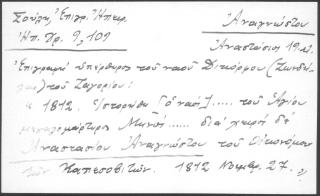 Σούλη, Ἐπιγρ. Ἠπειρ.
Ἠπ. Χρ. 9, 109
Ἀναγνώστου
Ἀναστάσιος 19 αἰ.
Ἐπιγραφὴ ὑπέρθυρος τοῦ ναοῦ Δικόρφου
του) τοῦ Ζαγορίου:
"1812. Ἱστορήθη [ὁ ναὸς]..... τοῦ Ἁγίου
μεγαλομάρτυρος Μηνᾶ..... διὰ χειρὸς δὲ
Ἀναστασίου Ἀναγνώστου τοῦ Οἰκονόμου
τῶν Καπεσοβιτῶν. 1812 Νοεμβρ. 27."